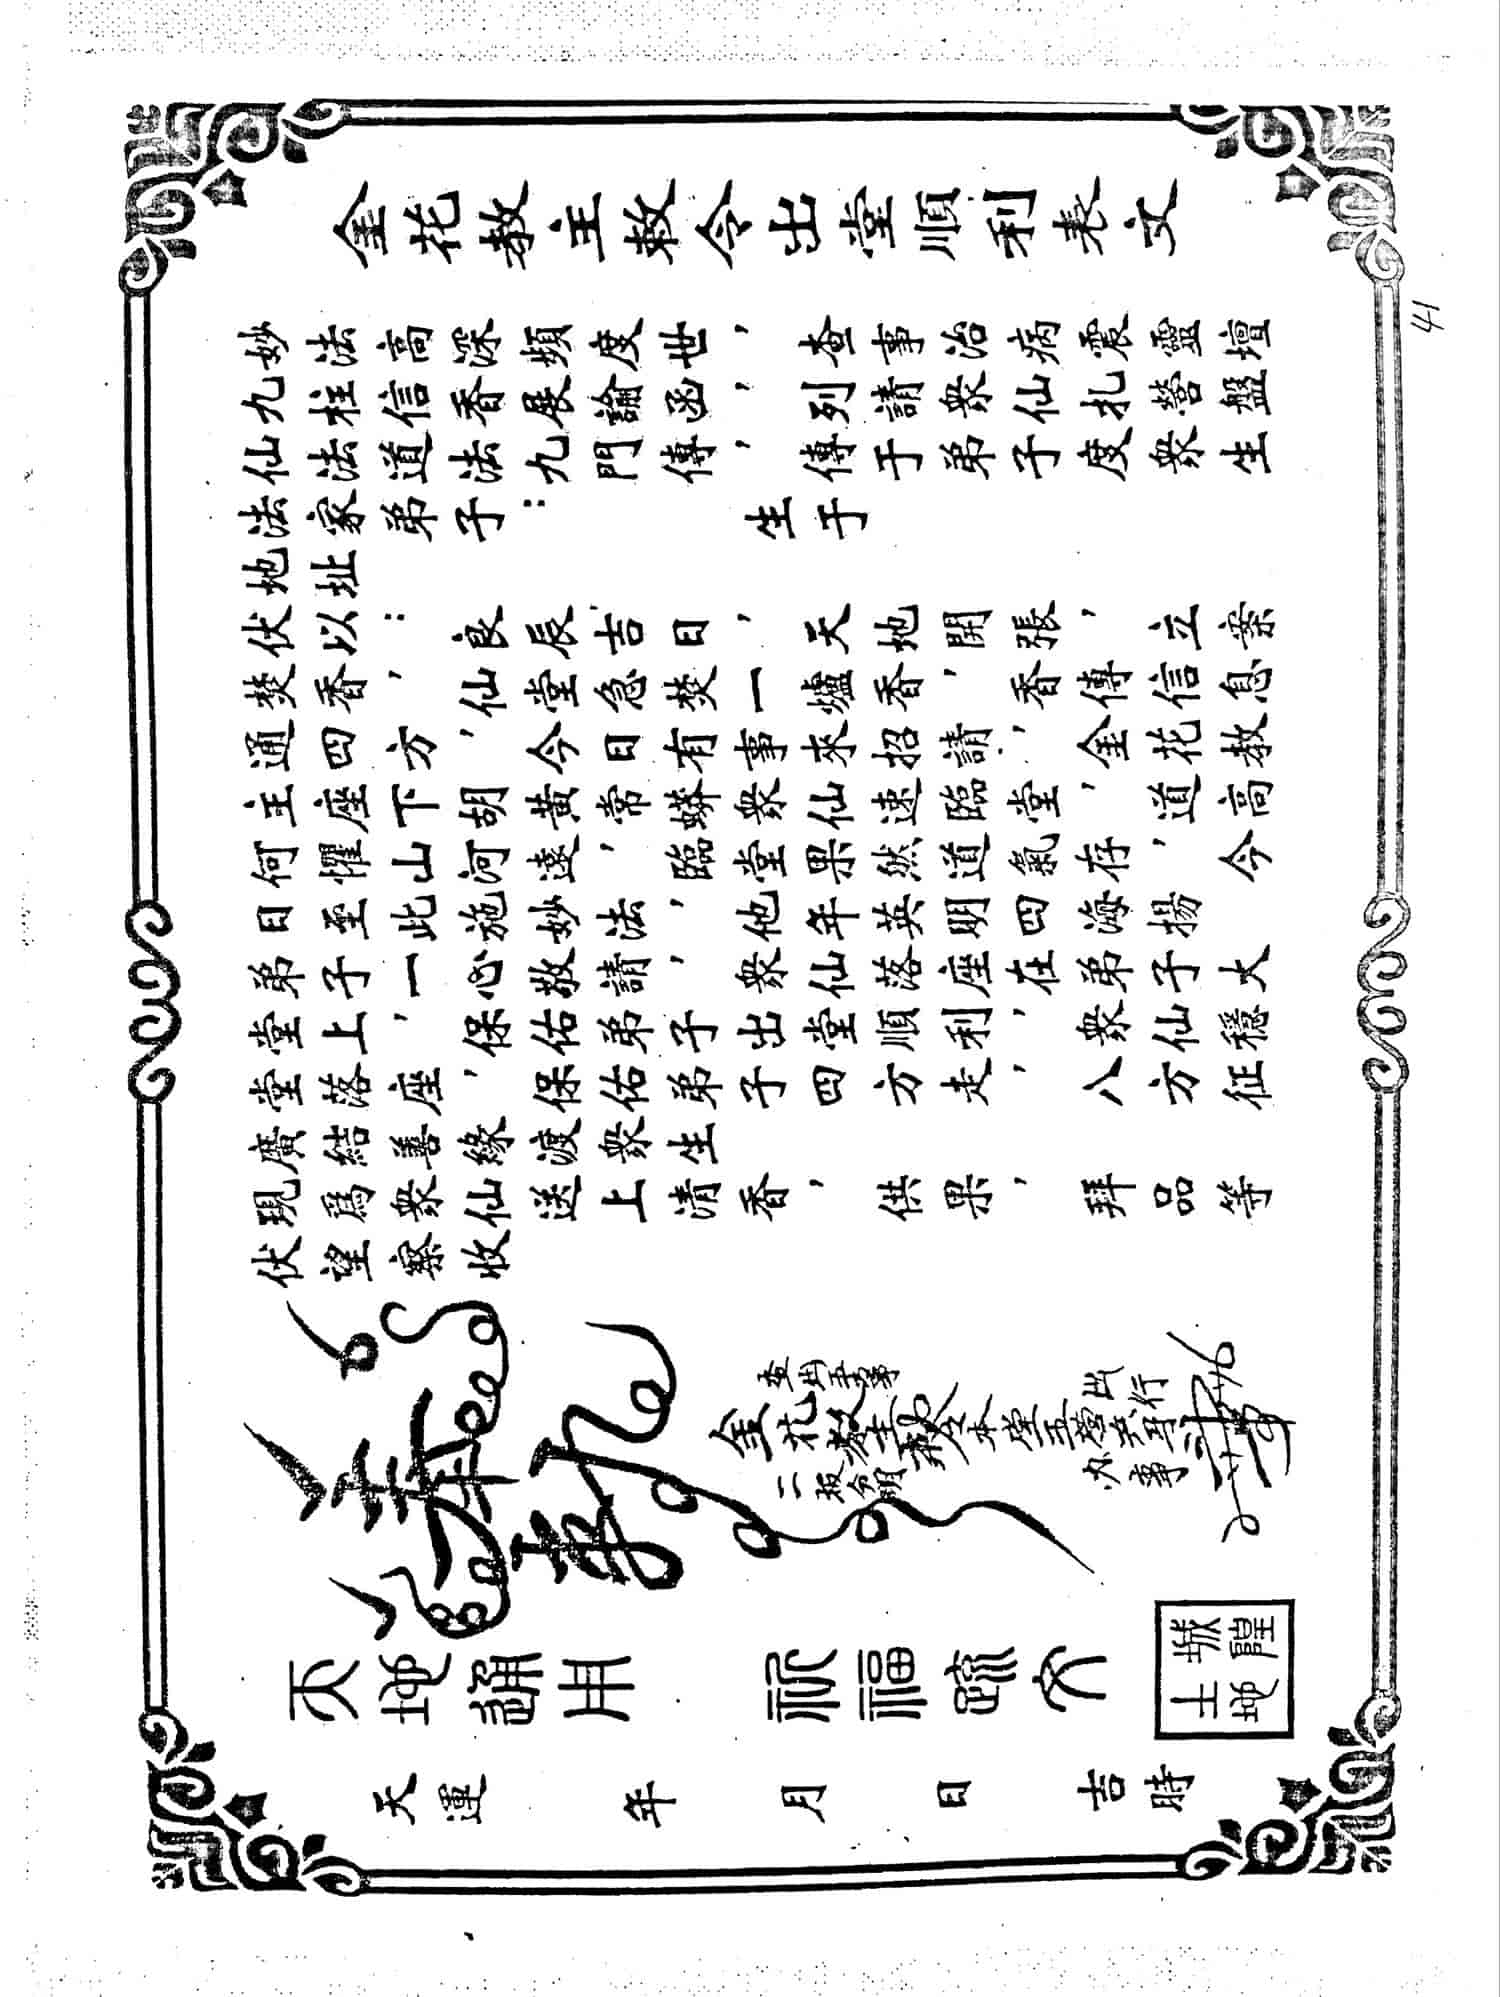 金花教主敕令出堂順利表文
妙法高深頻度世，查事治病震靈壇
九柱信香展論函，列請眾仙扎營盤
仙法道法九門傳，傳于弟子度眾生
法家弟子：生于
地址
伏以：良辰吉日，天地開張，立案
焚香，仙堂急焚一爐香，香傳信息
通四方，今日有事來招請，金花教
主座下胡黃常蟒眾仙速臨堂，道高
何懼山河遠，臨堂果然道氣存，今
日至此施妙法，他年英明四海揚
弟子一心敬請，眾仙落座在弟子大
堂上，保佑弟子出堂順利，眾仙穩
堂落座，保佑弟子四方走，八方征
廣結善緣渡眾生
現為眾仙送上清香，供果，拜品等
伏望察收
出行
金花教主
办事
天地通用 祈福疏文
城隍
土地
天運 年 月 日 吉時
41